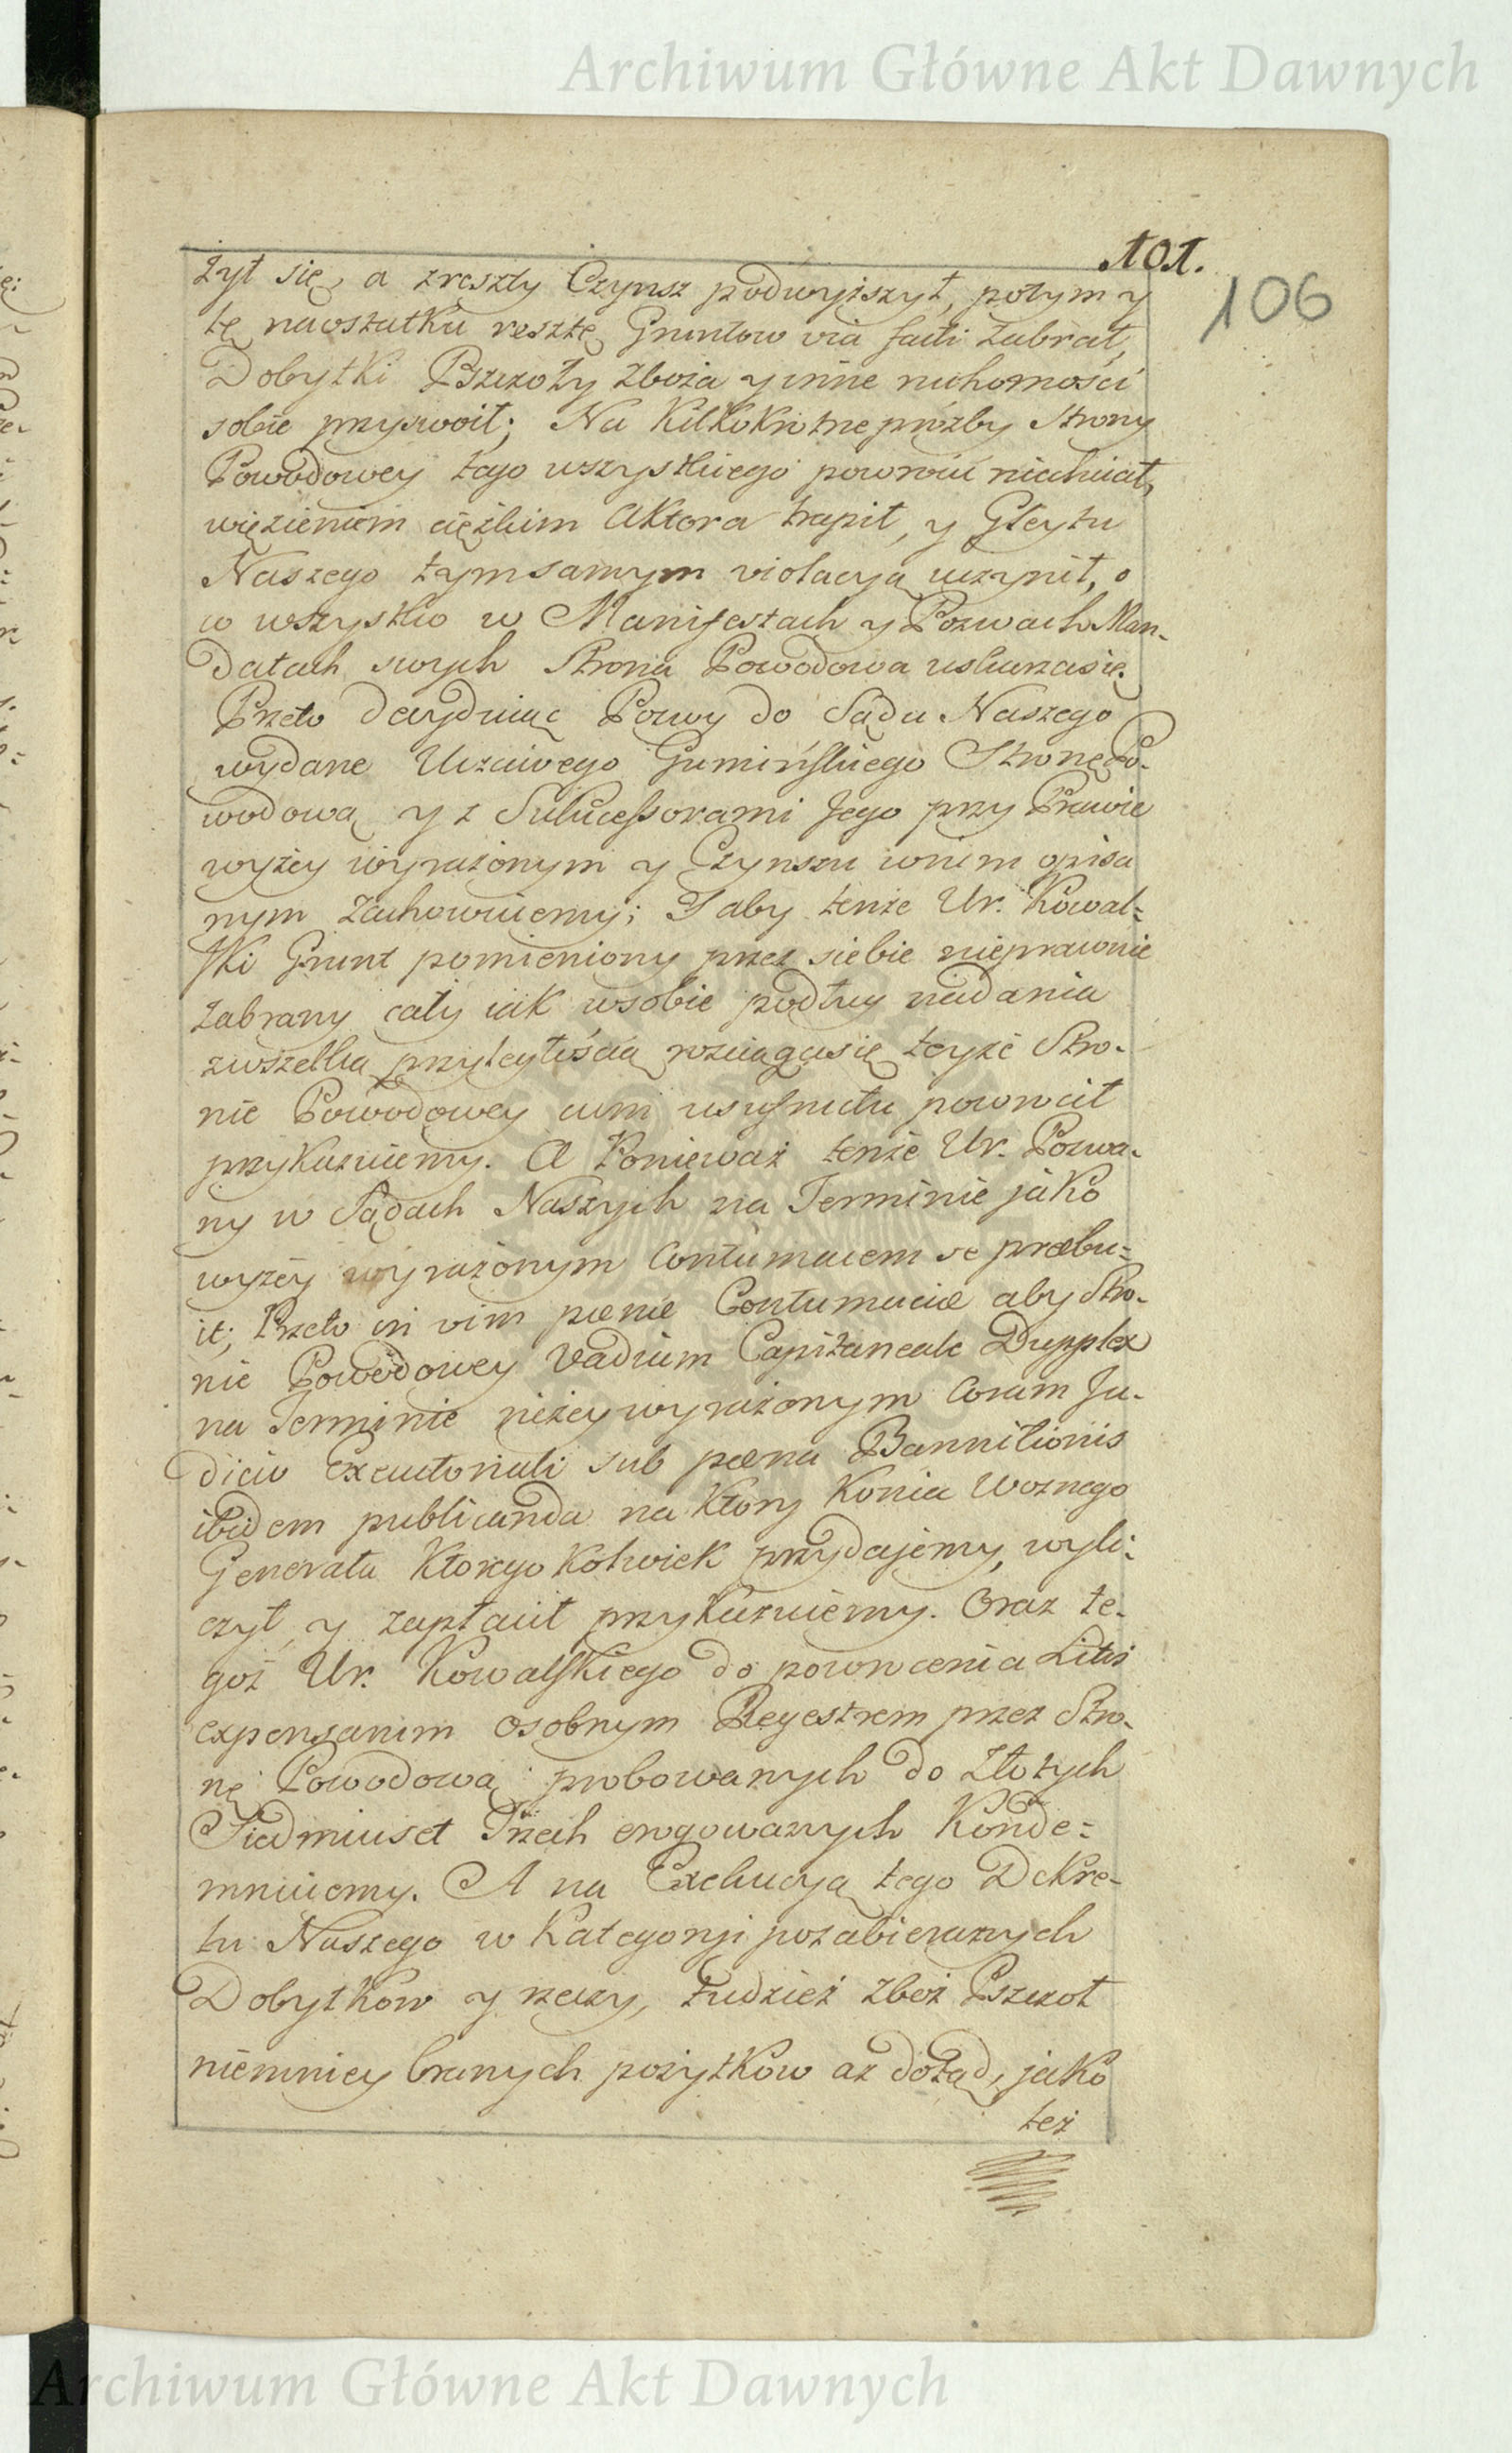 Archiwum Główne Akt Dawnych
101.
106
żył się, a zreszty Czynsz podwyiszył, potym y
tę naostatku resztę Gruntow via facti zabrał,
Dobytki Pszczoły Zboża y inne ruchomości
sobie przyswoił; Na kilkokrotne prozby Strony
Powodowey tego wszystkiego powrocic niechciał,
więzieniem cięzkim Aktora trapił, y Gleytu
Naszego tymsamym violacyą uczynił, o
co wszystko w Manifestach y Pozwach Man-
datach swych Strona Powodowa uskarzasię.
Przeto decyduiąc Pozwy do Sądu Naszego
wydane Uczciwego Gumińskiego Stronę Po-
wodową y z Sukcessorami Jego przy Prawie
wyżey wyrażonym y Czynszu wnim opisa
nym zachowuiemy; I aby tenże Ur. Kowal=
ski Grunt pomieniony przez siebie nieprawnie
zabrany cały iak wsobie podług nadania
zwszelką przyległością rozciągasię teyże Stro-
nie Powodowey cum usufructu powrocił
przykazuiemy. A Ponieważ tenże Ur. Pozwa-
ny w Sądach Naszych na Terminie jako
wyżey wyrażonym Contumacem se præbu=
it; Przeto in vim pœnæ Contumaciæ aby Stro-
nie Powodowey Vadium Capitaneale Dupplex
na Terminie niżey wyrażonym Coram Ju-
dicio Executoriali sub pœna Bannitionis
ibidem publicanda na Ktory Konia Woznego
Generała Ktoregokolwiek przydajemy, wyli-
czył y zapłacił przykazuiemy. Oraz te-
goż Ur. Kowalskiego do powrocenia Litis
expensarum osobnym Regestrem przez Stro-
nę Powodową probowanych do Złotych
Siedmiuset Trzech erogowanych Konde=
mnuiemy. A na Exekucyą tego Dekre-
tu Naszego w Kategoryi pozabieranych
Dobytkow y rzeczy, tudzież zboż Pszczoł
niemniey branych pożytkow aż dotąd, jako
też
Archiwum Główne Akt Dawnych